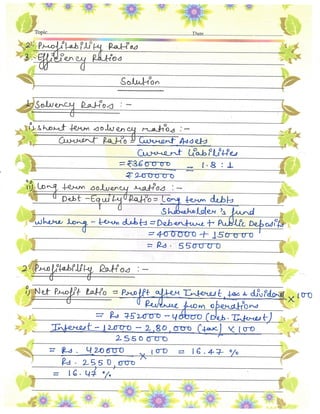 Topic Date
2. Profitability Ratios
3. Efficiency Ratios
Solution
1. Solvency Ratios :-
i) Short term solvency ratios :-
Current Ratio = Current Assets
Current Liabilities
= ₹360000 = 1.8 : 1
₹200000
ii) Long term solvency ratios :-
Debt-Equity Ratio = Long term debts
Shareholder's fund
where long-term debts = Debenture + Public Deposits
= 400000 + 150000
= Rs. 550000
2. Profitability Ratios :-
i) Net Profit Ratio = Profit after Interest, tax & dividend × 100
Revenue from operations
= Rs 752000 - 40000 (Deb. Interest)
Interest - 12000 - 2,80,000 (tax) × 100
2550000
= Rs. 420000 × 100 = 16.47 %
Rs. 2550,000
= 16.47 %